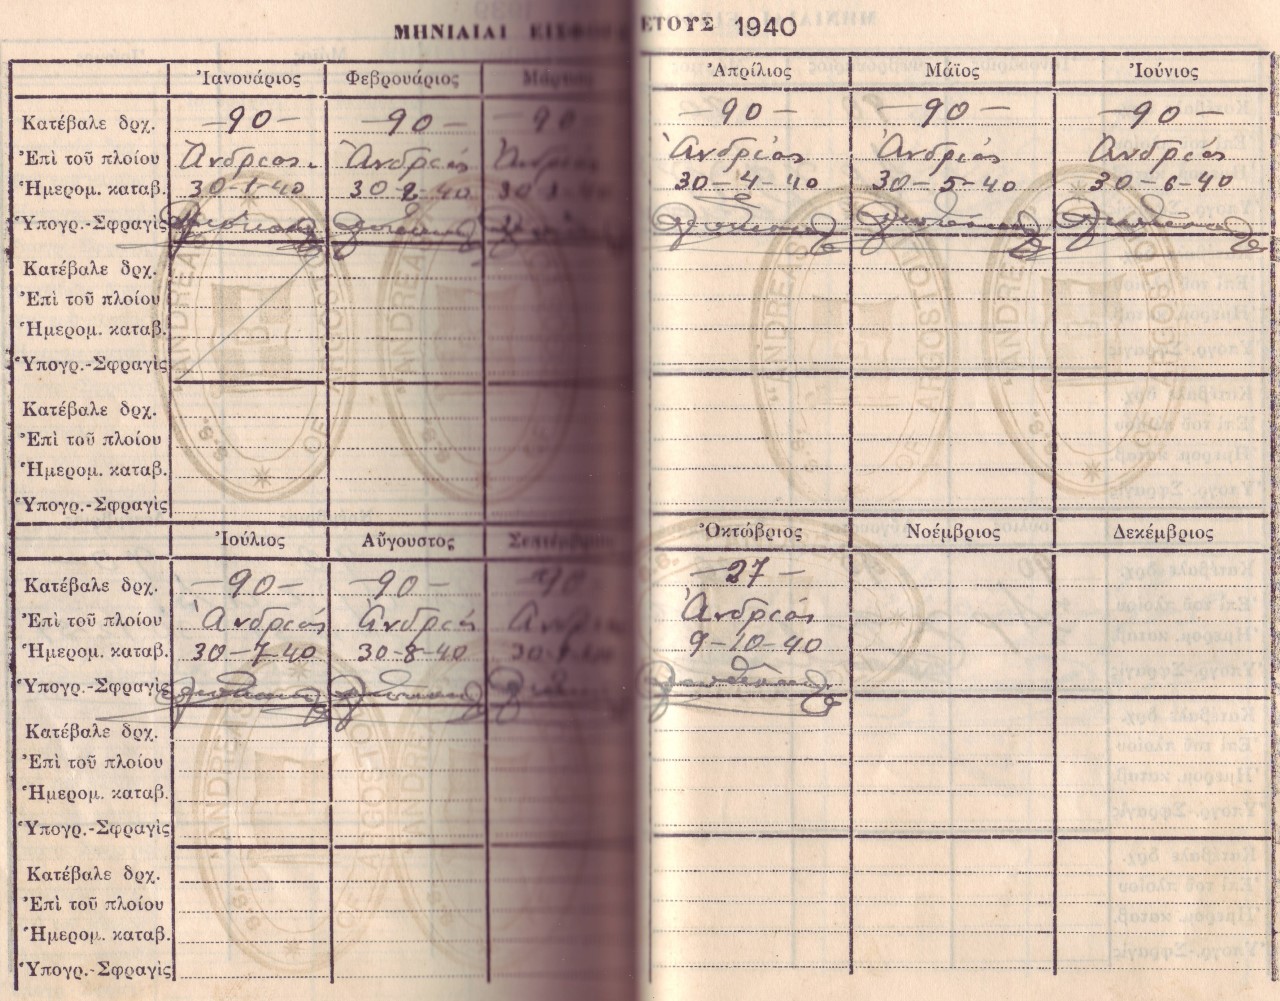 ΜΗΝΙΑΙΑΙ ΕΤΟΥΣ 1940
Ἰανουάριος Φεβρουάριος Μάρτιος Ἀπρίλιος Μάϊος Ἰούνιος
Κατέβαλε δρχ. —90— —90— —90 —90— —90— —90—
Ἐπὶ τοῦ πλοίου Ἀνδρέας Ἀνδρέας Ἀνδρέας Ἀνδρέας Ἀνδρέας
Ἡμερομ. καταβ. 30-1-40 30-2-40 30-4-40 30-5-40 30-6-40
Ὑπογρ.-Σφραγὶς
Κατέβαλε δρχ.
Ἐπὶ τοῦ πλοίου
Ἡμερομ. καταβ.
Ὑπογρ.-Σφραγὶς
Κατέβαλε δρχ.
Ἐπὶ τοῦ πλοίου
Ἡμερομ. καταβ.
Ὑπογρ.-Σφραγὶς
Ἰούλιος Αὔγουστος Σεπτέμβριος Ὀκτώβριος Νοέμβριος Δεκέμβριος
Κατέβαλε δρχ. —90— —90— —90 —27—
Ἐπὶ τοῦ πλοίου Ἀνδρέας Ἀνδρέας Ἀνδρέας
Ἡμερομ. καταβ. 30-7-40 30-8-40 9-10-40
Ὑπογρ.-Σφραγὶς
Κατέβαλε δρχ.
Ἐπὶ τοῦ πλοίου
Ἡμερομ. καταβ.
Ὑπογρ.-Σφραγὶς
Κατέβαλε δρχ.
Ἐπὶ τοῦ πλοίου
Ἡμερομ. καταβ.
Ὑπογρ.-Σφραγὶς